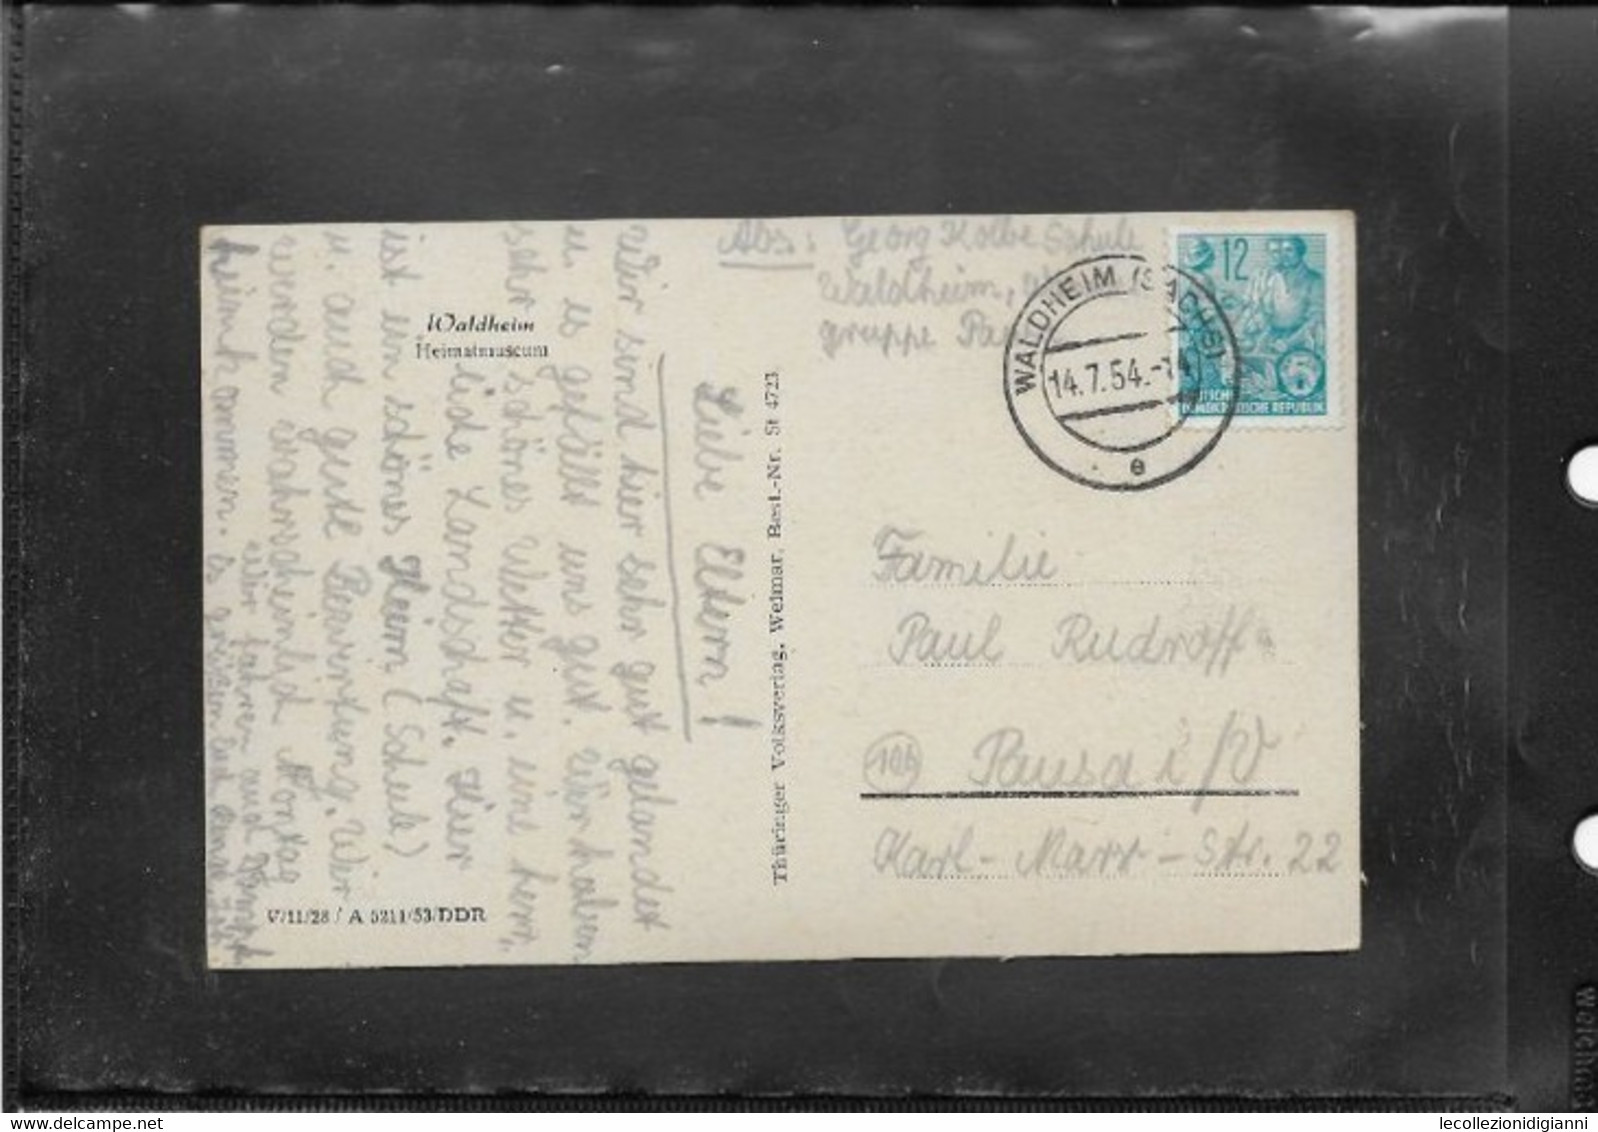 Abs: Georg Kolbe Schule
Waldheim,
gruppe Pau
WALDHEIM (SACHS)
14.7.54.-14
e
12
DEUTSCHE
DEMOKRATISCHE REPUBLIK
5
Waldheim
Heimatmuseum
Liebe Eltern!
Wir sind hier sehr gut gelandet
u. es gefällt uns gut. Wir haben
sehr schönes Wetter u. eine herr,,
liche Landschaft. Hier
ist ein schönes Heim (Schule)
u. auch gute Bewirtung. Wir
werden wahrscheinlich Montag
heimkommen. Es grüßen Euch
Wir fahren auch
Thüringer Volksverlag, Weimar, Best.-Nr. St 4723
Familie
Paul Rudroff
(10b) Pausa i/V
Karl-Marx-Str. 22
V/11/28 / A 5211/53/DDR
lecollezionidigianni